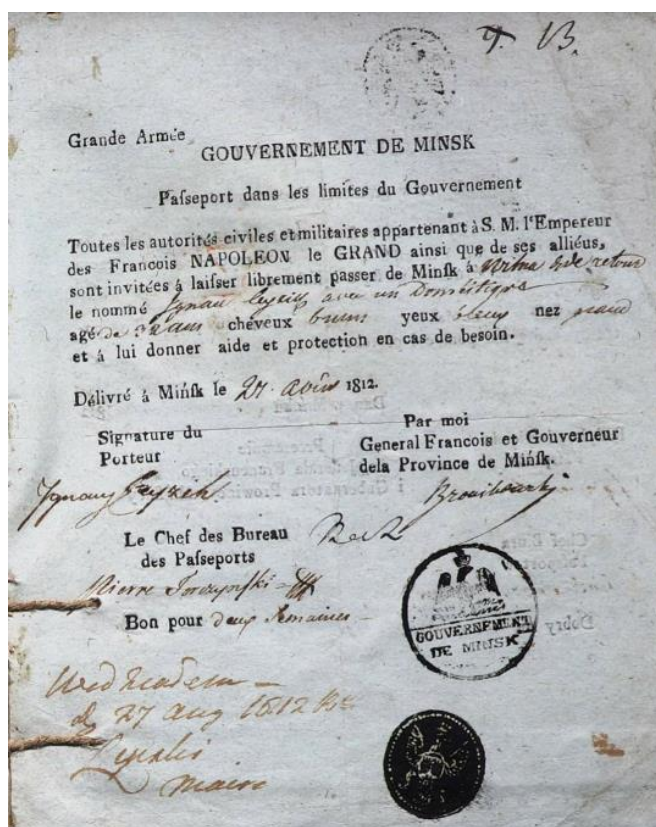 13.
Grande Armée
GOUVERNEMENT DE MINSK
Paſseport dans les limites du Gouvernement
Toutes les autorités civiles et militaires appartenant à S. M. l'Empereur
des Francois NAPOLEON le GRAND ainsi que de ses alliéus,
sont invitées à laiſser librement paſser de Minſk à Wilna & de retour
le nommé Ignace avec un Domestique
agé de 32 ans cheveux bruns yeux bleus nez grand
et à lui donner aide et protection en cas de besoin.
Délivré á Mińſk le 27. août 1812.
Signature du
Porteur
Par moi
General Francois et Gouverneur
dela Province de Mińſk.
Ignacy
Le Chef des Bureau
des Paſseports
Pierre
Bon pour deux Semaines
GOUVERNEMENT
DE MINSK
27 aug 1812